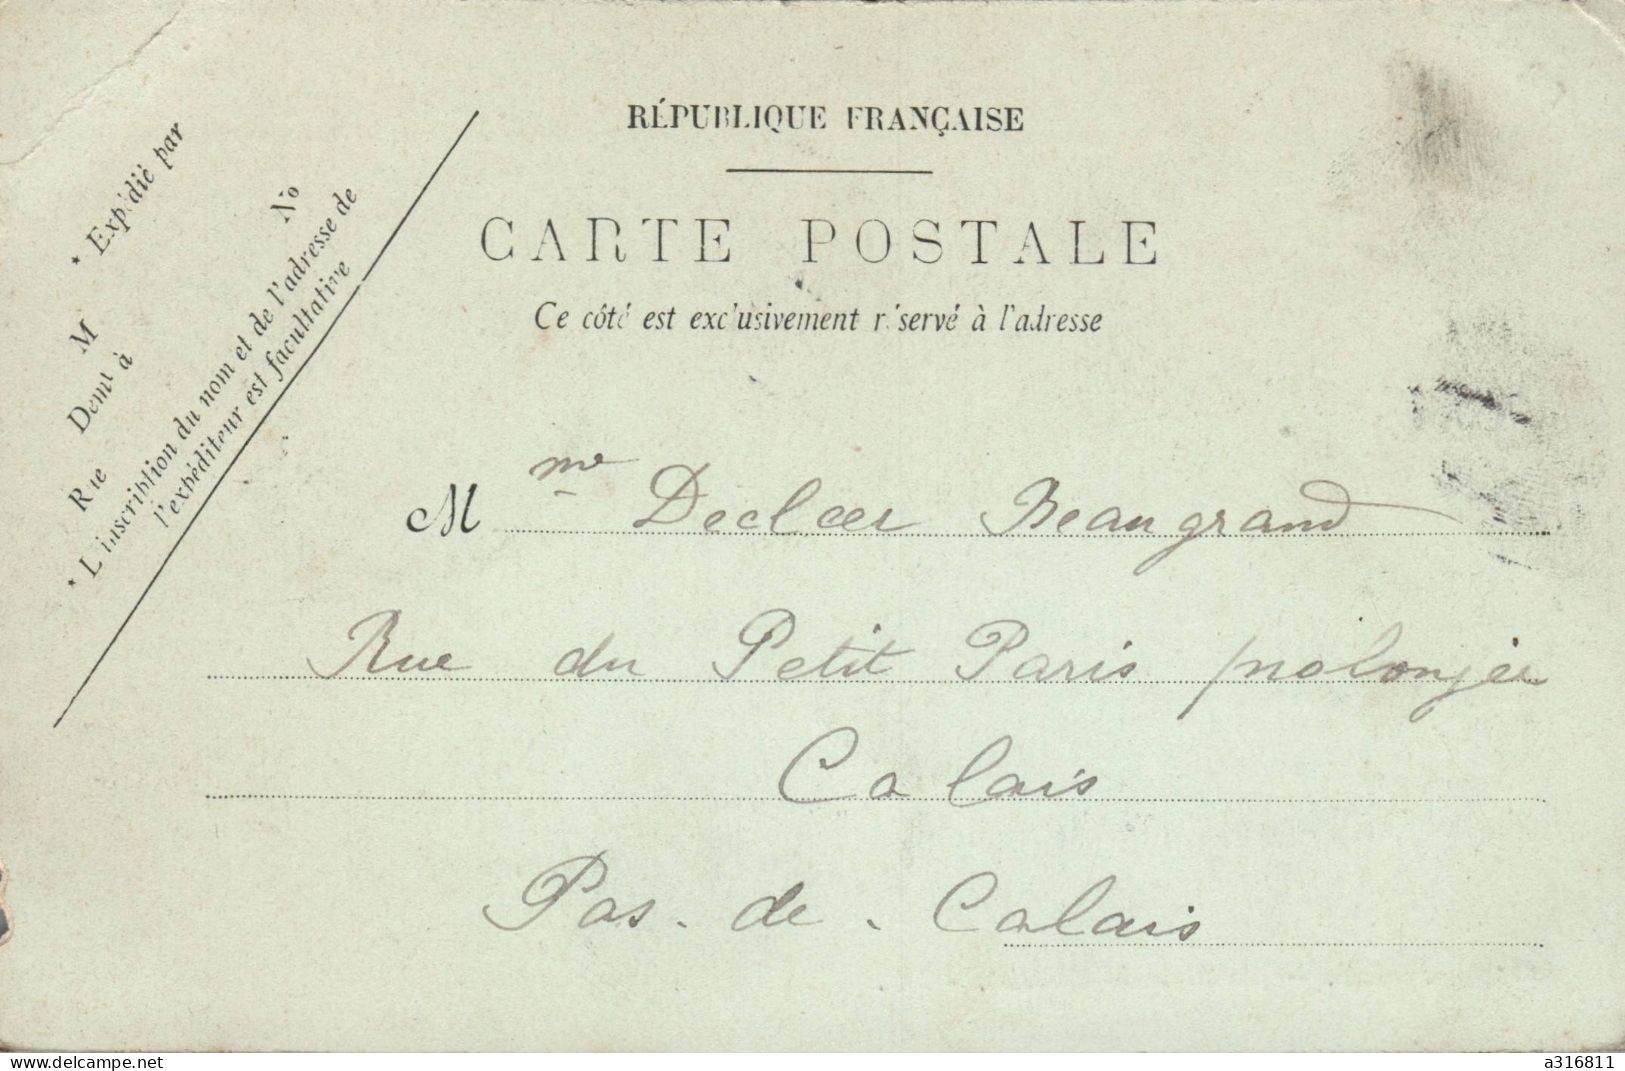 RÉPUBLIQUE FRANÇAISE
CARTE POSTALE
Ce côté est exclusivement réservé à l'adresse
* Expédié par
M No
Demt à
Rue
* L'inscription du nom et de l'adresse de
l'expéditeur est facultative
Mme Declcer Beaugrand
Rue du Petit Paris prolongée
Calais
Pas-de-Calais
delcampe.net
a316811